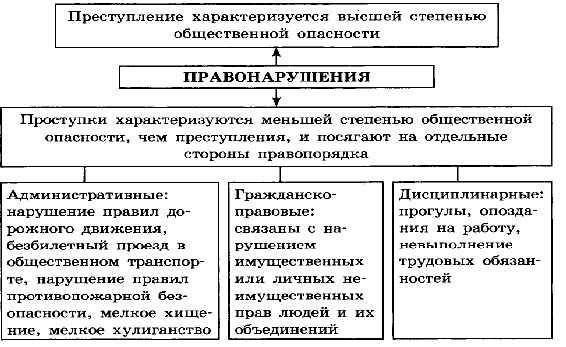 Преступление характеризуется высшей степенью
общественной опасности
ПРАВОНАРУШЕНИЯ
Проступки характеризуются меньшей степенью общественной
опасности, чем преступления, и посягают на отдельные
стороны правопорядка
Административные:
нарушение правил до-
рожного движения,
безбилетный проезд в
общественном транспор-
те, нарушение правил
противопожарной без-
опасности, мелкое хище-
ние, мелкое хулиганство
Гражданско-
правовые:
связаны с на-
рушением
имущественных
или личных не-
имущественных
прав людей и их
объединений
Дисциплинарные:
прогулы, опозда-
ния на работу,
невыполнение
трудовых обязан-
ностей